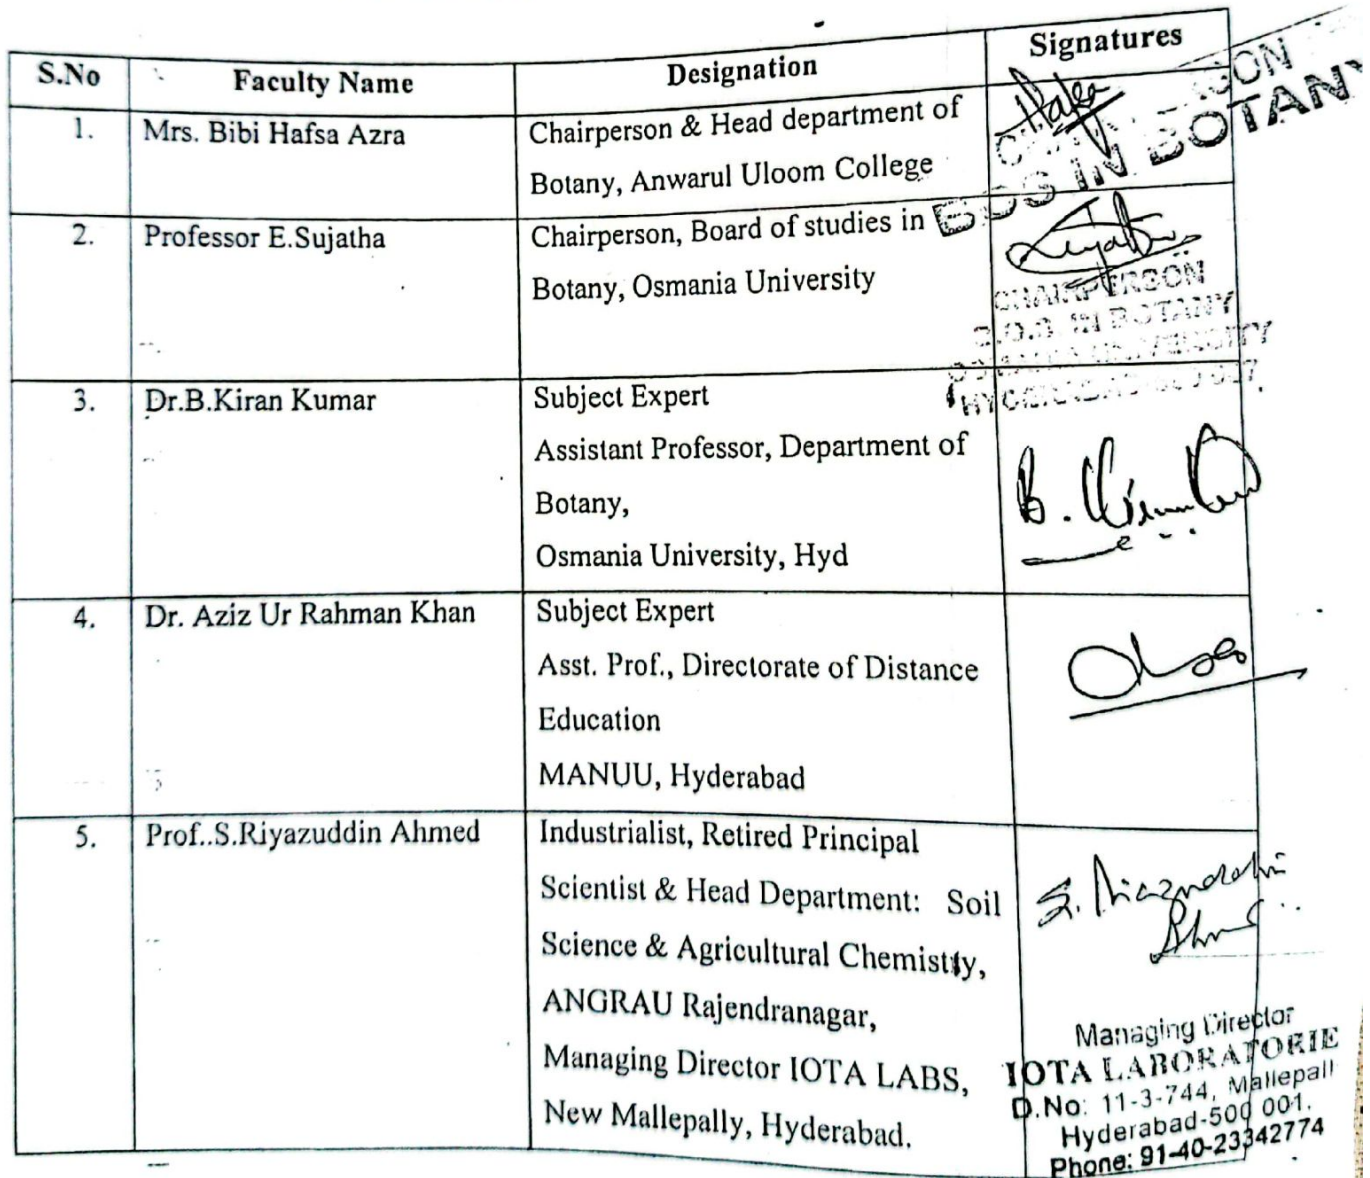 S.No Faculty Name Designation Signatures
1. Mrs. Bibi Hafsa Azra Chairperson & Head department of
Botany, Anwarul Uloom College
BOS IN BOTANY
2. Professor E.Sujatha Chairperson, Board of studies in
Botany, Osmania University
CHAIRPERSON
B.O.S. IN BOTANY
UNIVERSITY
3. Dr.B.Kiran Kumar Subject Expert
Assistant Professor, Department of
Botany,
Osmania University, Hyd
B. Kiran Kumar
4. Dr. Aziz Ur Rahman Khan Subject Expert
Asst. Prof., Directorate of Distance
Education
MANUU, Hyderabad
5. Prof..S.Riyazuddin Ahmed Industrialist, Retired Principal
Scientist & Head Department: Soil
Science & Agricultural Chemistry,
ANGRAU Rajendranagar,
Managing Director IOTA LABS,
New Mallepally, Hyderabad.
Managing Director
IOTA LABORATORIE
D.No: 11-3-744, Mallepall
Hyderabad-500 001.
Phone: 91-40-23342774